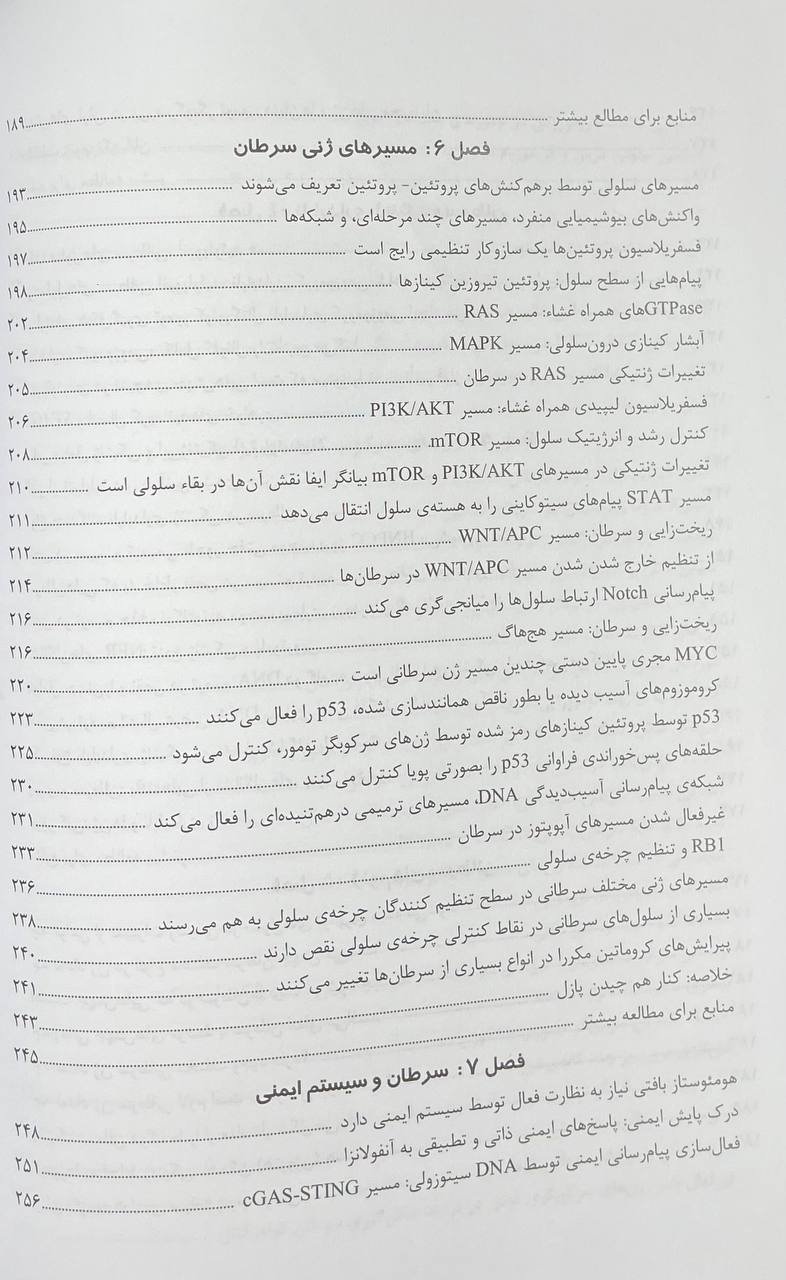 منابع برای مطالع بیشتر ........ ۱۸۹
فصل ۶: مسیرهای ژنی سرطان
مسیرهای سلولی توسط برهم‌کنش‌های پروتئین- پروتئین تعریف می‌شوند ........ ۱۹۳
واکنش‌های بیوشیمیایی منفرد، مسیرهای چند مرحله‌ای، و شبکه‌ها ........ ۱۹۵
فسفریلاسیون پروتئین‌ها یک سازوکار تنظیمی رایج است ........ ۱۹۷
پیام‌هایی از سطح سلول: پروتئین تیروزین کینازها ........ ۱۹۸
GTPaseهای همراه غشاء: مسیر RAS ........ ۲۰۲
آبشار کینازی درون‌سلولی: مسیر MAPK ........ ۲۰۴
تغییرات ژنتیکی مسیر RAS در سرطان ........ ۲۰۵
فسفریلاسیون لیپیدی همراه غشاء: مسیر PI3K/AKT ........ ۲۰۶
کنترل رشد و انرژیتیک سلول: مسیر mTOR ........ ۲۰۸
تغییرات ژنتیکی در مسیرهای PI3K/AKT و mTOR بیانگر ایفا نقش آن‌ها در بقاء سلولی است ........ ۲۱۰
مسیر STAT پیام‌های سیتوکاینی را به هسته‌ی سلول انتقال می‌دهد ........ ۲۱۱
ریخت‌زایی و سرطان: مسیر WNT/APC ........ ۲۱۲
از تنظیم خارج شدن شدن مسیر WNT/APC در سرطان‌ها ........ ۲۱۴
پیام‌رسانی Notch ارتباط سلول‌ها را میانجی‌گری می‌کند ........ ۲۱۶
ریخت‌زایی و سرطان: مسیر هج‌هاگ ........ ۲۱۶
MYC مجری پایین دستی چندین مسیر ژن سرطانی است ........ ۲۲۰
کروموزوم‌های آسیب دیده یا بطور ناقص همانندسازی شده، p53 را فعال می‌کنند ........ ۲۲۳
p53 توسط پروتئین کینازهای رمز شده توسط ژن‌های سرکوبگر تومور، کنترل می‌شود ........ ۲۲۵
حلقه‌های پس‌خوراندی فراوانی p53 را بصورتی پویا کنترل می‌کنند ........ ۲۳۰
شبکه‌ی پیام‌رسانی آسیب‌دیدگی DNA، مسیرهای ترمیمی درهم‌تنیده‌ای را فعال می‌کند ........ ۲۳۱
غیرفعال شدن مسیرهای آپوپتوز در سرطان ........ ۲۳۳
RB1 و تنظیم چرخه‌ی سلولی ........ ۲۳۶
مسیرهای ژنی مختلف سرطانی در سطح تنظیم کنندگان چرخه‌ی سلولی به هم می‌رسند ........ ۲۳۸
بسیاری از سلول‌های سرطانی در نقاط کنترلی چرخه‌ی سلولی نقص دارند ........ ۲۴۰
پیرایش‌های کروماتین مکررا در انواع بسیاری از سرطان‌ها تغییر می‌کنند ........ ۲۴۱
خلاصه: کنار هم چیدن پازل ........ ۲۴۳
منابع برای مطالعه بیشتر ........ ۲۴۵
فصل ۷: سرطان و سیستم ایمنی
هومئوستاز بافتی نیاز به نظارت فعال توسط سیستم ایمنی دارد ........ ۲۴۸
درک پایش ایمنی: پاسخ‌های ایمنی ذاتی و تطبیقی به آنفولانزا ........ ۲۵۱
فعال‌سازی پیام‌رسانی ایمنی توسط DNA سیتوزولی: مسیر cGAS-STING ........ ۲۵۶